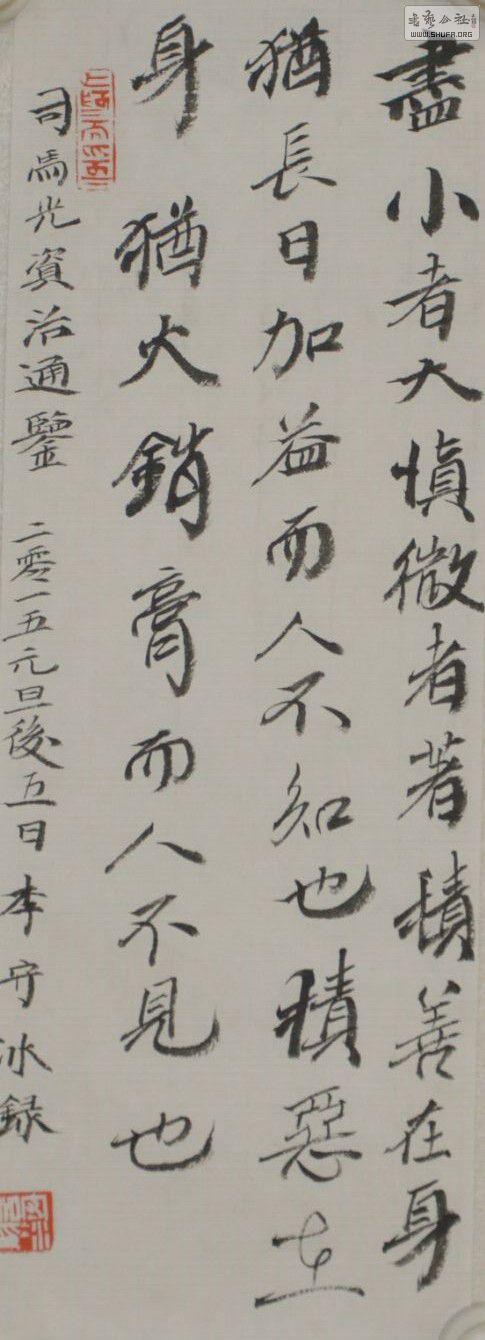 盡小者大慎微者著積善在身
猶長日加益而人不知也積惡在
身猶火銷膏而人不見也
司馬光資治通鑒 二零一五元旦後五日李守冰録
WWW.SHUFA.ORG